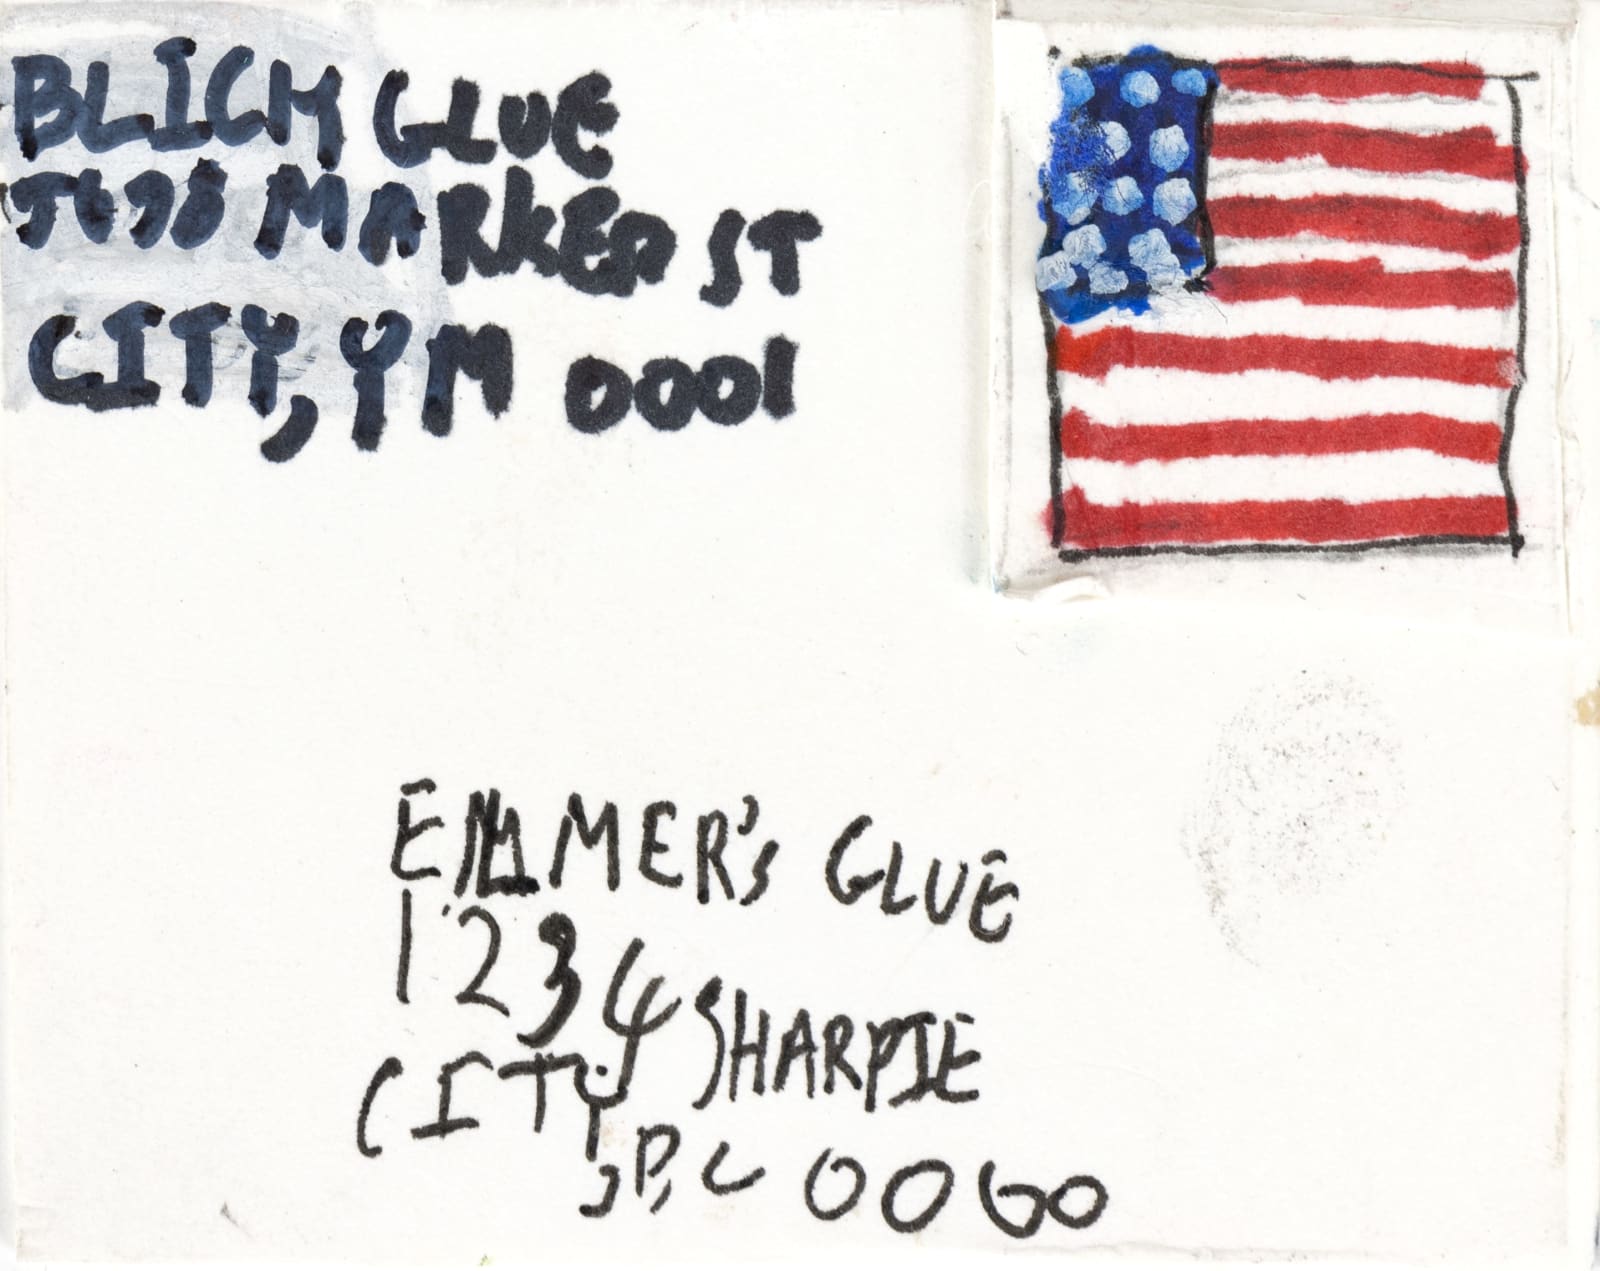 BLICM GLUE
MARKER ST
CITY, YM 0001
EMMER'S GLUE
1234 SHARPIE
CITY, P,C 0060